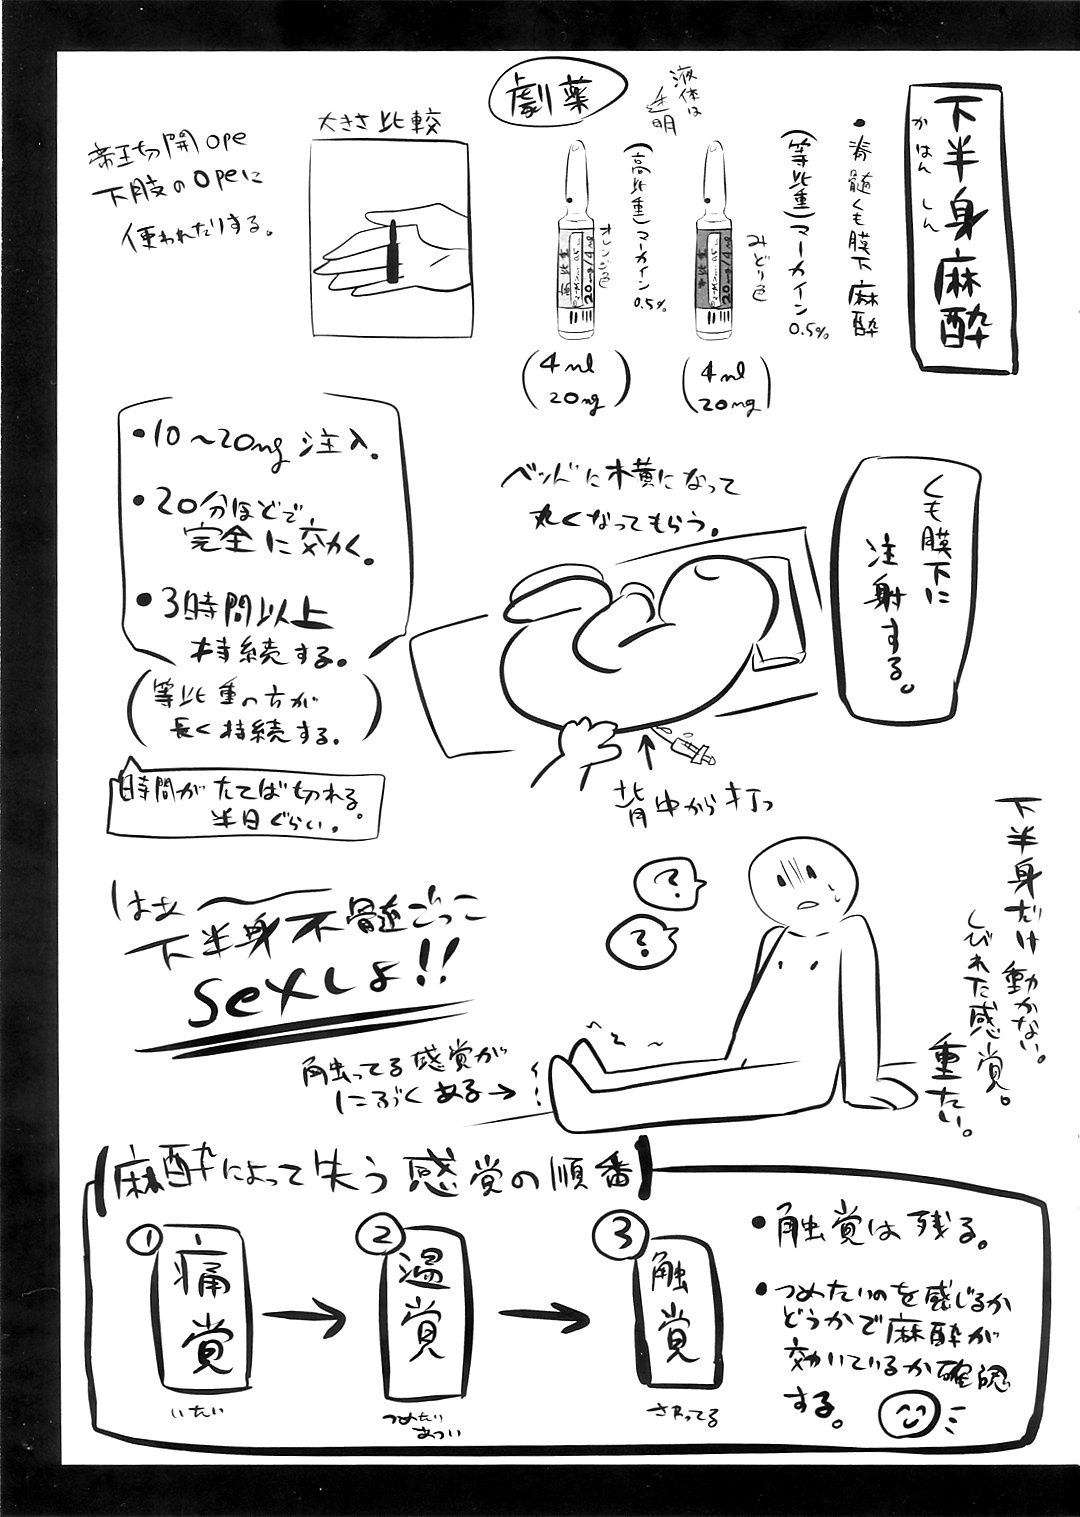 下半身麻酔
かはんしん
•脊髄くも膜下麻酔
(等比重)マーカイン0.5%
みどり色
液体は
透明
劇薬
(高比重)マーカイン0.5%
オレンジ色
20mg/4ml
20mg/4ml
(4ml
20mg)
(4ml
20mg)
大きさ比較
帝王切開ope
下肢のopeに
使われたりする。
くも膜下に
注射する。
ベッドに横になって
丸くなってもらう。
背中から打つ
•10〜20mg注入。
•20分ほどで
完全に効く。
•3時間以上
持続する。
(等比重の方が
長く持続する。)
時間がたてば切れる。
半日ぐらい。
はぁ〜
下半身不髄ごっこ
sexしよ!!
下半身だけ動かない。
しびれた感覚。
重たい。
?
?
触ってる感覚が
にぶくある→
麻酔によって失う感覚の順番
①痛覚
いたい
→
②温覚
つめたい
あつい
→
③触覚
さわってる
•触覚は残る。
•つめたいのを感じるか
どうかで麻酔が
効いているか確認
する。